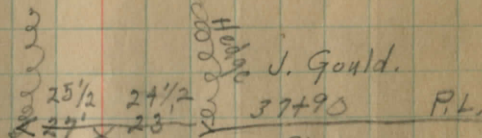 Hedge
J. Gould.
25½ 24½ 37+90 P.L.
27' 23